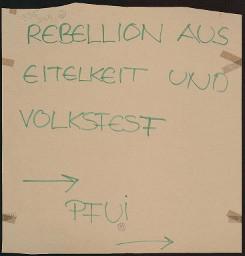 REBELLION AUS
EITELKEIT UND
VOLKSFEST
PFUI